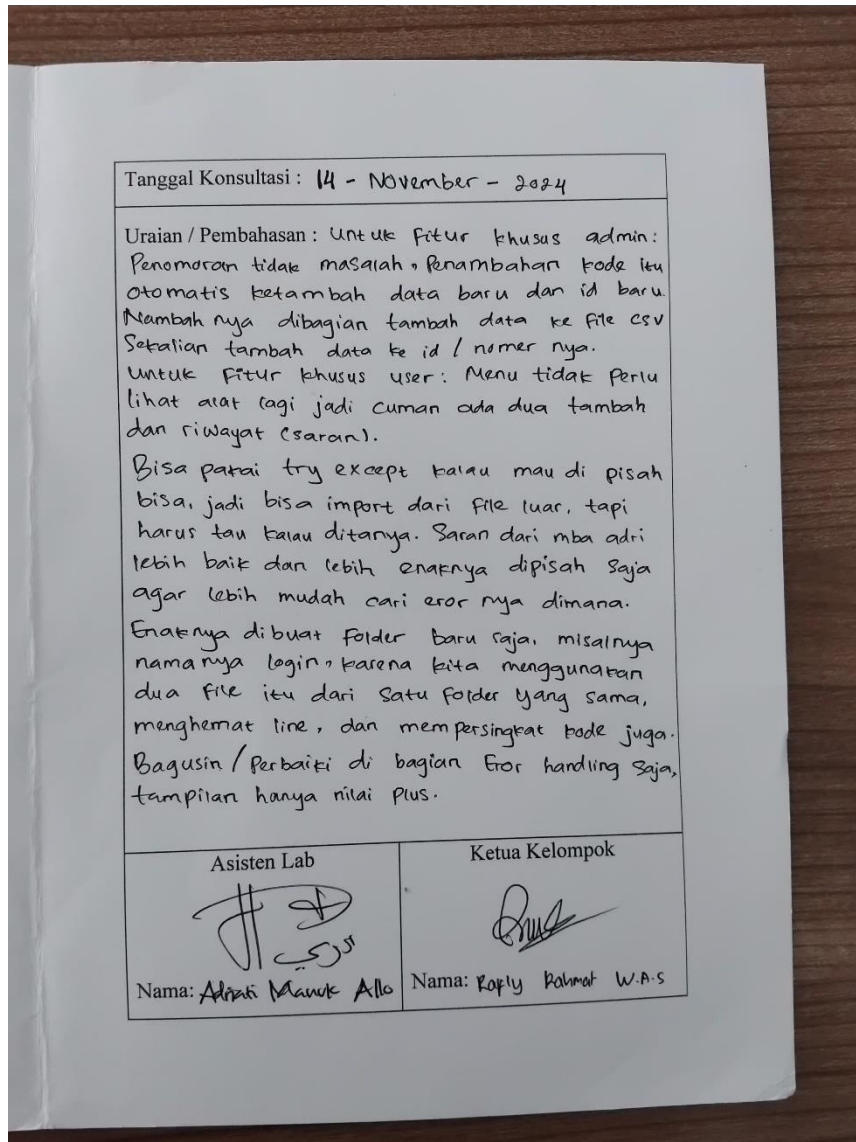 Tanggal Konsultasi : 14 - November - 2024
Uraian / Pembahasan : Untuk Fitur khusus admin:
Penomoran tidak masalah, Penambahan kode itu
otomatis ketambah data baru dan id baru.
Nambah nya dibagian tambah data ke file csv
Sekalian tambah data ke id / nomer nya.
Untuk Fitur khusus user: Menu tidak Perlu
lihat alat lagi jadi cuman ada dua tambah
dan riwayat (saran).
Bisa pakai try except kalau mau di pisah
bisa, jadi bisa import dari file luar, tapi
harus tau kalau ditanya. Saran dari mba adri
lebih baik dan lebih enaknya dipisah saja
agar lebih mudah cari eror nya dimana.
Enaknya dibuat folder baru saja, misalnya
nama nya login, karena kita menggunakan
dua file itu dari satu folder yang sama,
menghemat line, dan mempersingkat kode juga.
Bagusin / Perbaiki di bagian Eror handling saja,
tampilan hanya nilai plus.
Asisten Lab Ketua Kelompok
Nama: Adriati Manuk Allo Nama: Rafly Rahmat W.A.S